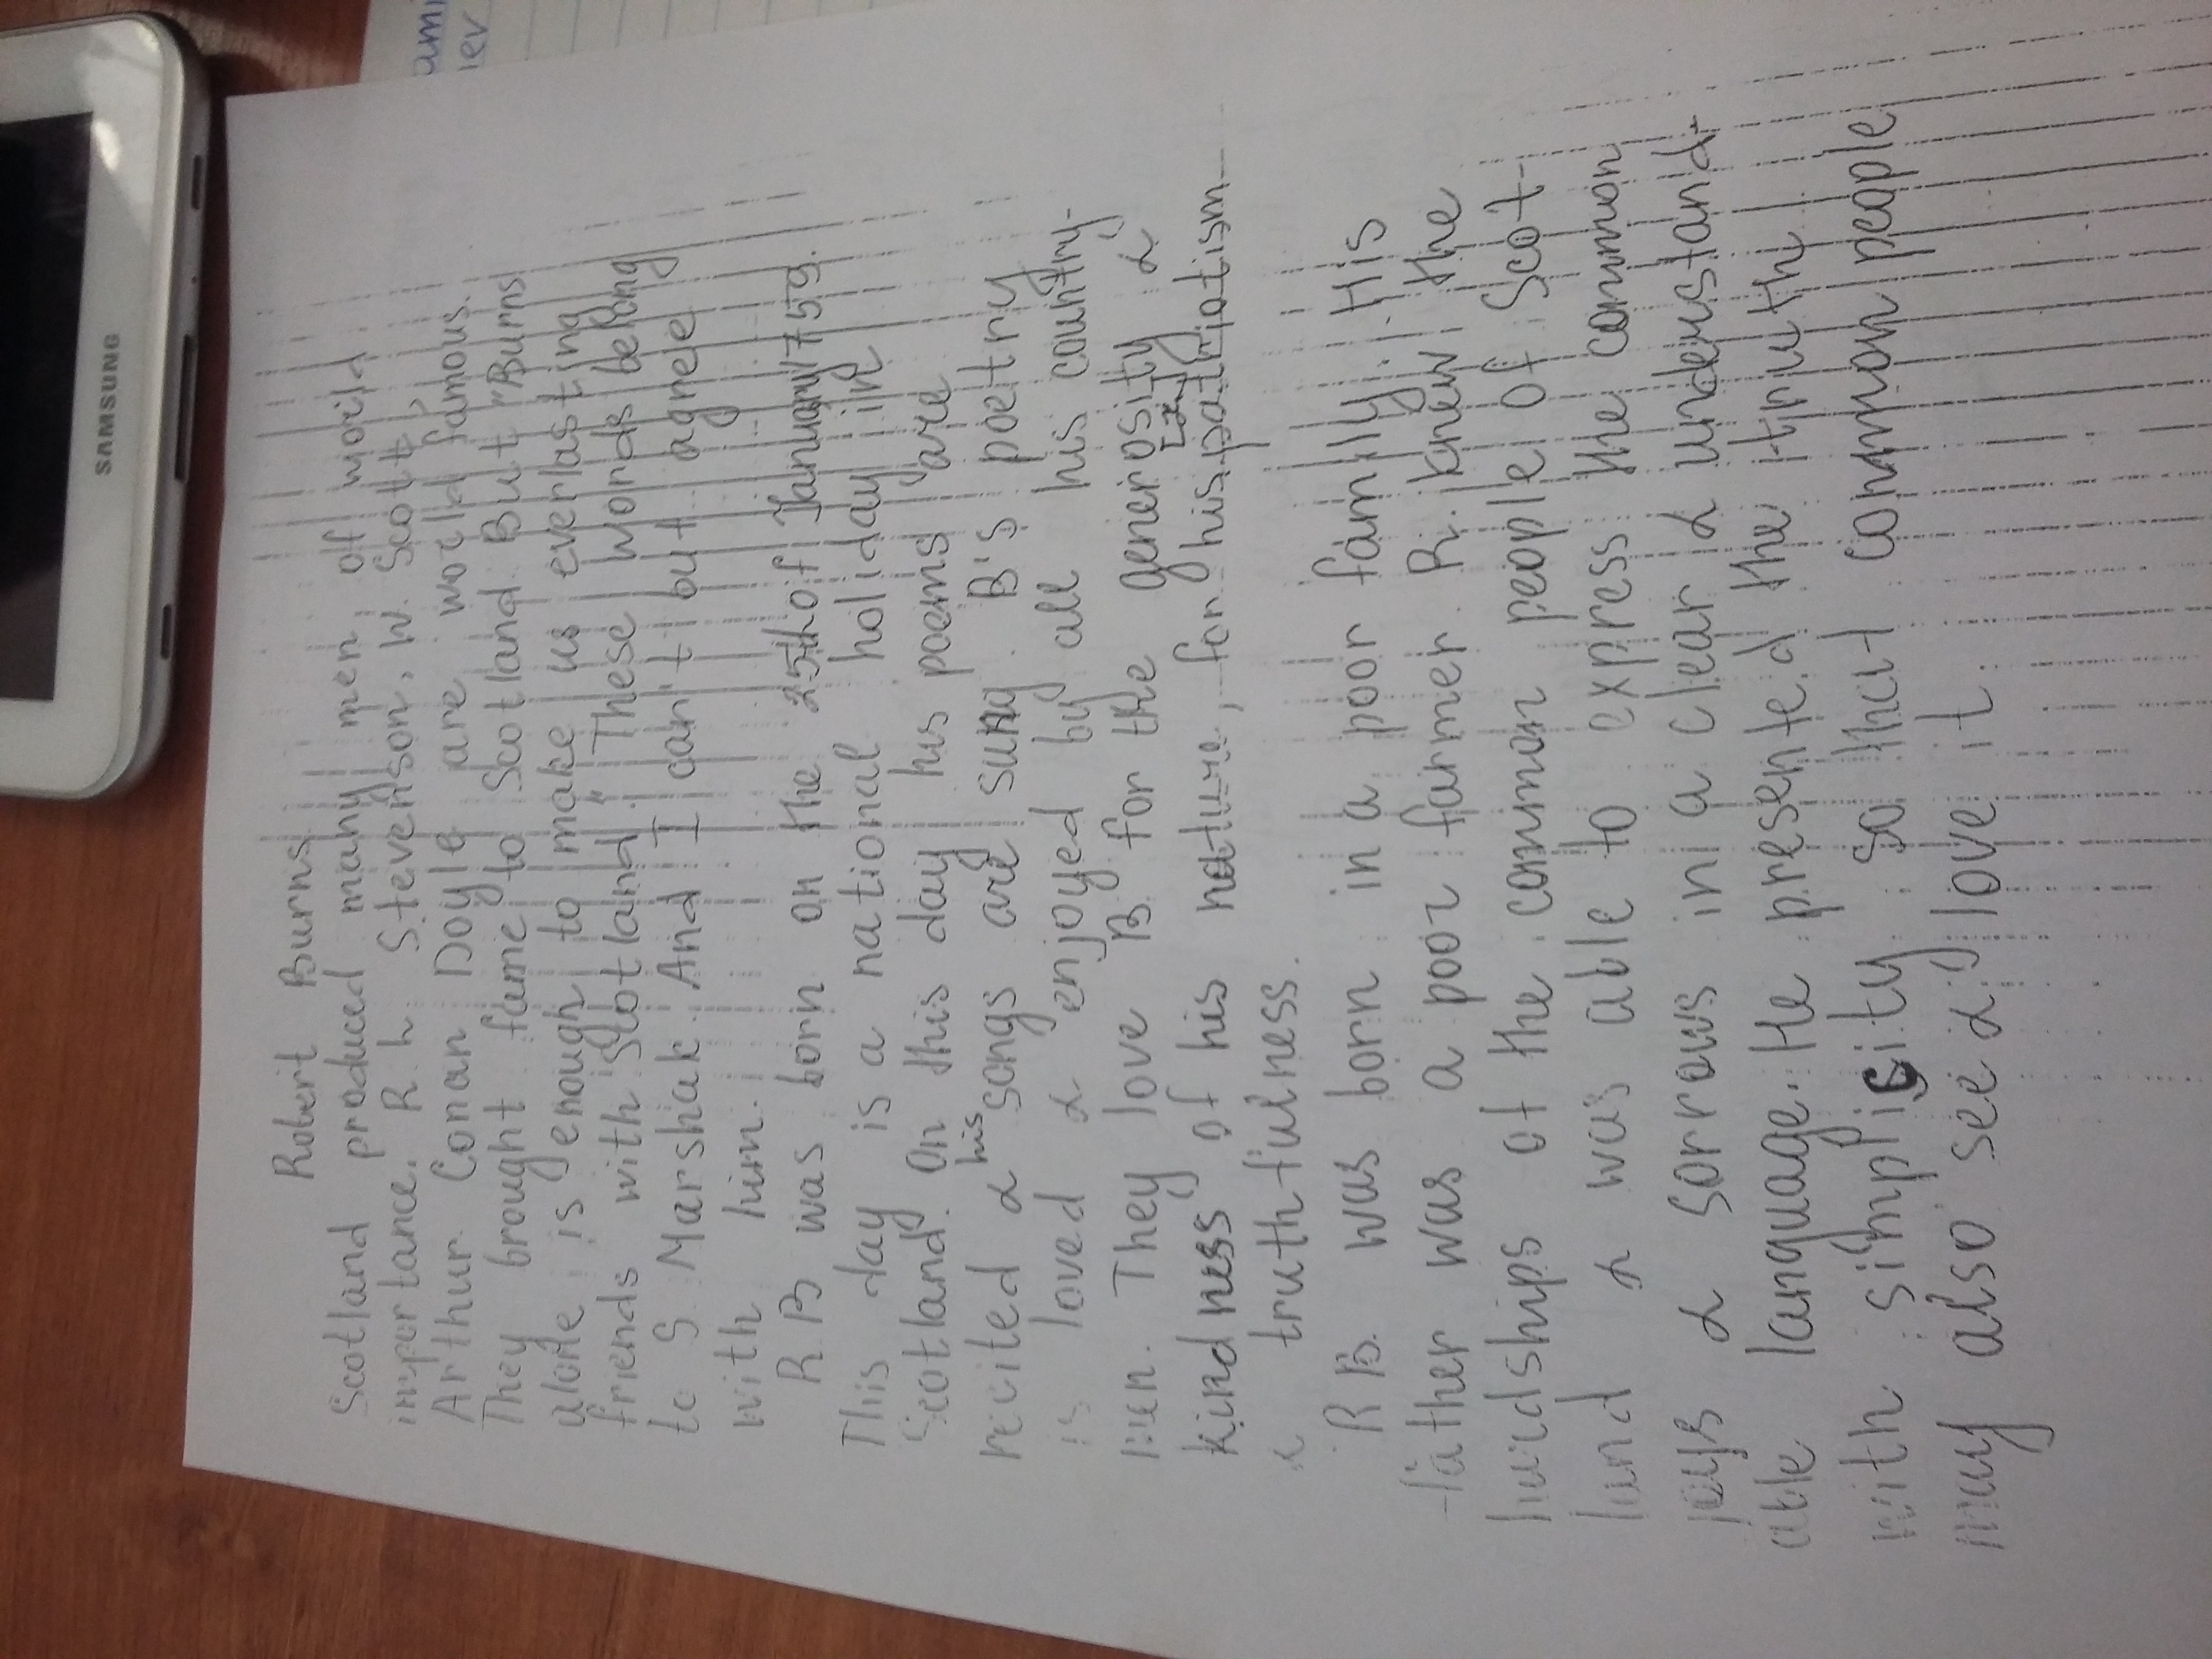 SAMSUNG
Robert Burns
Scotland produced many men of world
importance. R. L. Stevenson, W. Scott,
Arthur Conan Doyle are world famous.
They brought fame to Scotland. But "Burns
alone is enough to make us everlasting
friends with Scotland." These words belong
to S. Marshak. And I can't but agree
with him.
R B was born on the 25th of January 1759.
This day is a national holiday in
Scotland. On this day his poems are
recited & his songs are sung. B's poetry
is loved & enjoyed by all his country-
men. They love B. for the generosity &
[æ]
kindness of his nature, for his patriotism
& truthfulness.
R B. was born in a poor family. His
father was a poor farmer. R. knew the
hardships of the common people of Scot-
land & was able to express the common
joys & sorrows in a clear & understand-
able language. He presented the truth
with simplicity so that common people
may also see & love it.